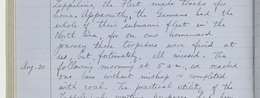 Zeppelins, the Fleet made tracks for
home. Apparently, the Germans had the
whole of their submarine fleet in the
North Sea, for on our homeward
journey three torpedoes were fired at
us, but fortunately, all missed. The
Aug. 20 following morning at 5 a.m. we reached
our base without mishap & completed
with coal. The practical utility of the